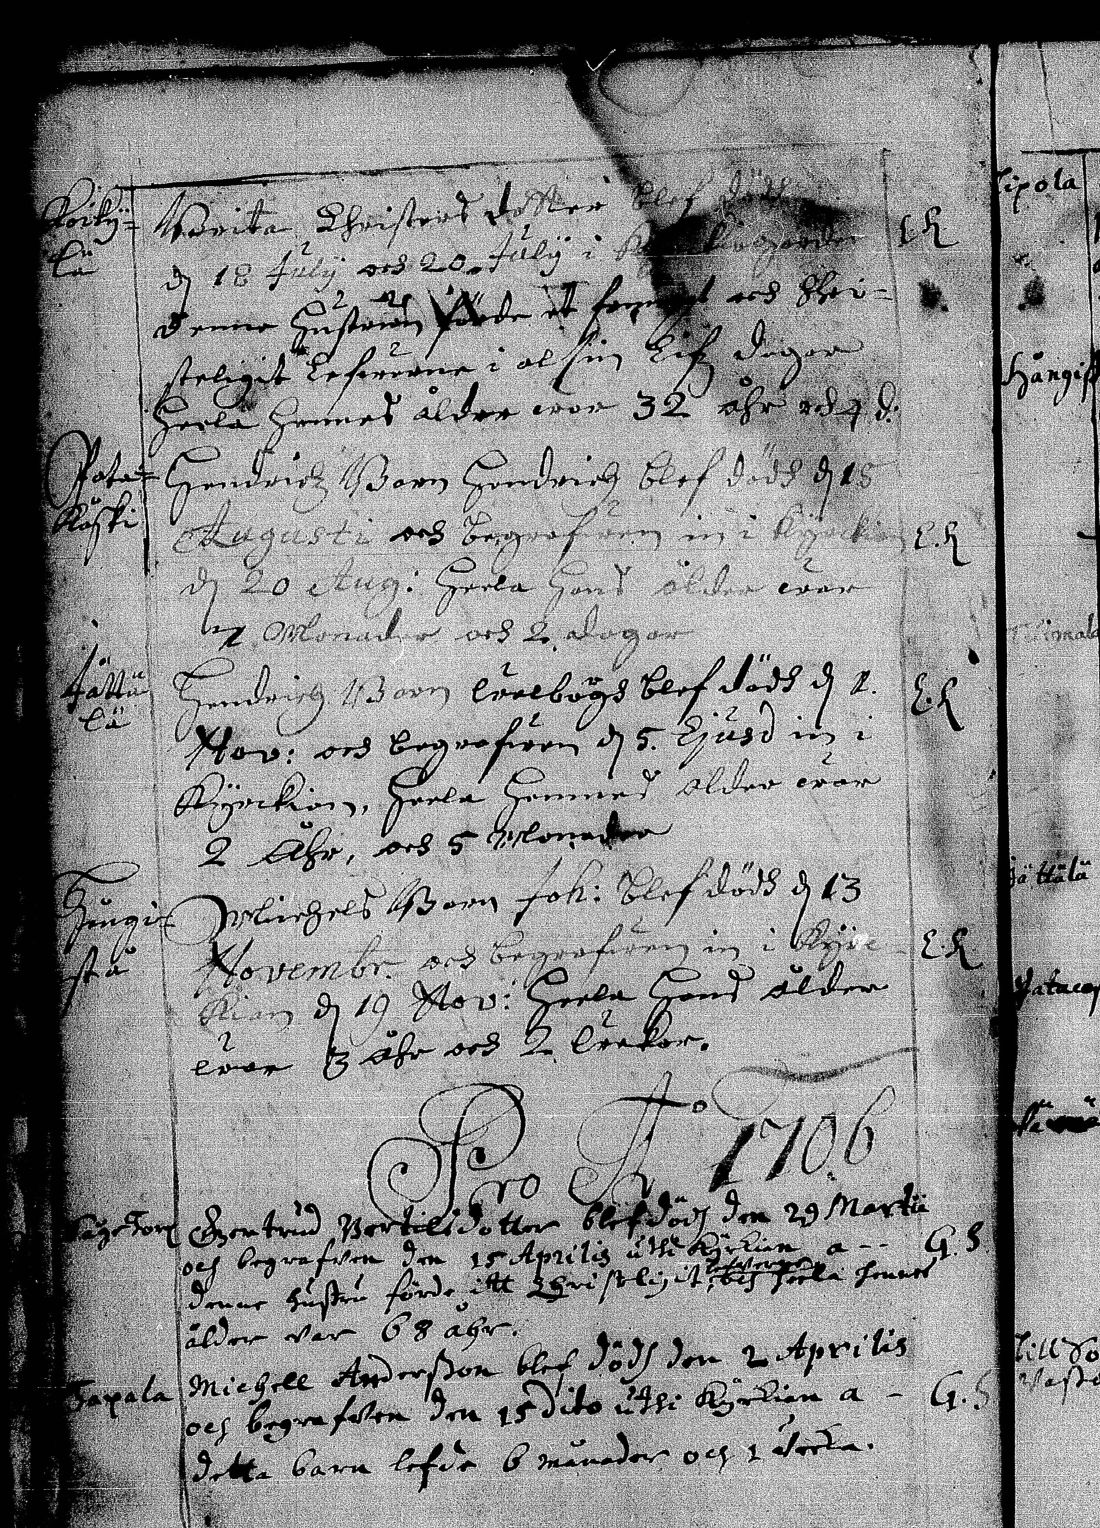 Koiky=
lä
Brita Christers dotter blef dödh
d 18 July och 20 July i
Denne Hustrun förde et fromt och Chri=
steligit Lefwerne i al sin Lifz dagar
Heela Hennes ålder war 32 åhr och 4 d.
E.K
Pata=
koski
Hendrich Barn Hendrich blef dödh d 18
Augusti och begrafwen in i Kyrckian
d 20 Aug: Heela Hans ålder war
Monader och 2 dagar
E.K
Jättü
lä
Hendrich Barn Walborgh blef dödh d 1.
Nov: och begrafwen d 5. Ejusd in i
Kyrckian, Heela Hennes ålder war
2 Åhr, och 5 Monader
E.K
Hungi=
stå
Michels Barn Joh: blef dödh d 13
Novembr. och begrafwen in i Kyrc=
kian d 19 Nov: Heela Hans ålder
war 3 Åhr och 2 Wekor.
E.K
Pro Ao 1706
Gertrud Bertilsdotter blef död den 29 Martii
och begrafven den 15 Aprilis uthi Kyrkian a --
G.S
denne hustru förde itt Christeligit lefverne och heela hennes
ålder var 68 åhr.
Tapala
Michell Andersson blef dödh den 2 Aprilis
och begrafven den 15 dito uthi Kyrkian a -
G.S
detta barn lefde 6 månader och 1 Vecka.
Tipola
Hångis
Jättülä